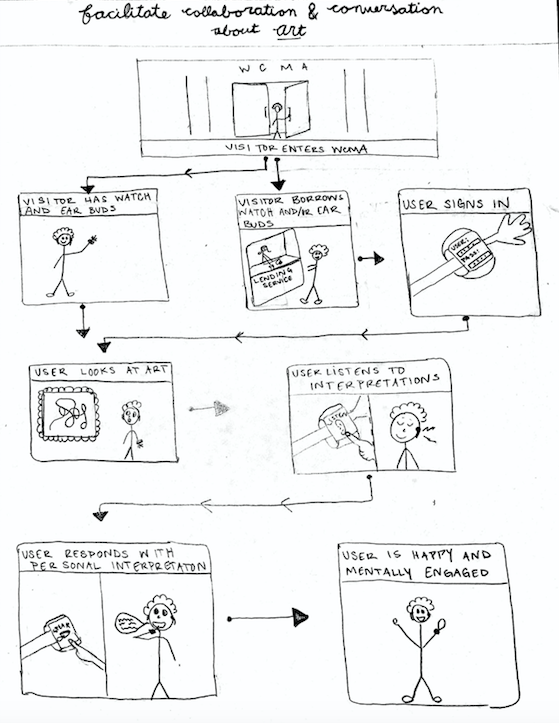 facilitate collaboration & conversation
about art
W C M A
VISITOR ENTERS WCMA
VISITOR HAS WATCH
AND EAR BUDS
VISITOR BORROWS
WATCH AND/OR EAR
BUDS
LENDING
SERVICE
USER SIGNS IN
USER:
PASS:
USER LOOKS AT ART
USER LISTENS TO
INTERPRETATIONS
LISTEN
USER RESPONDS WITH
PERSONAL INTERPRETATON
SPEAK
USER IS HAPPY AND
MENTALLY ENGAGED